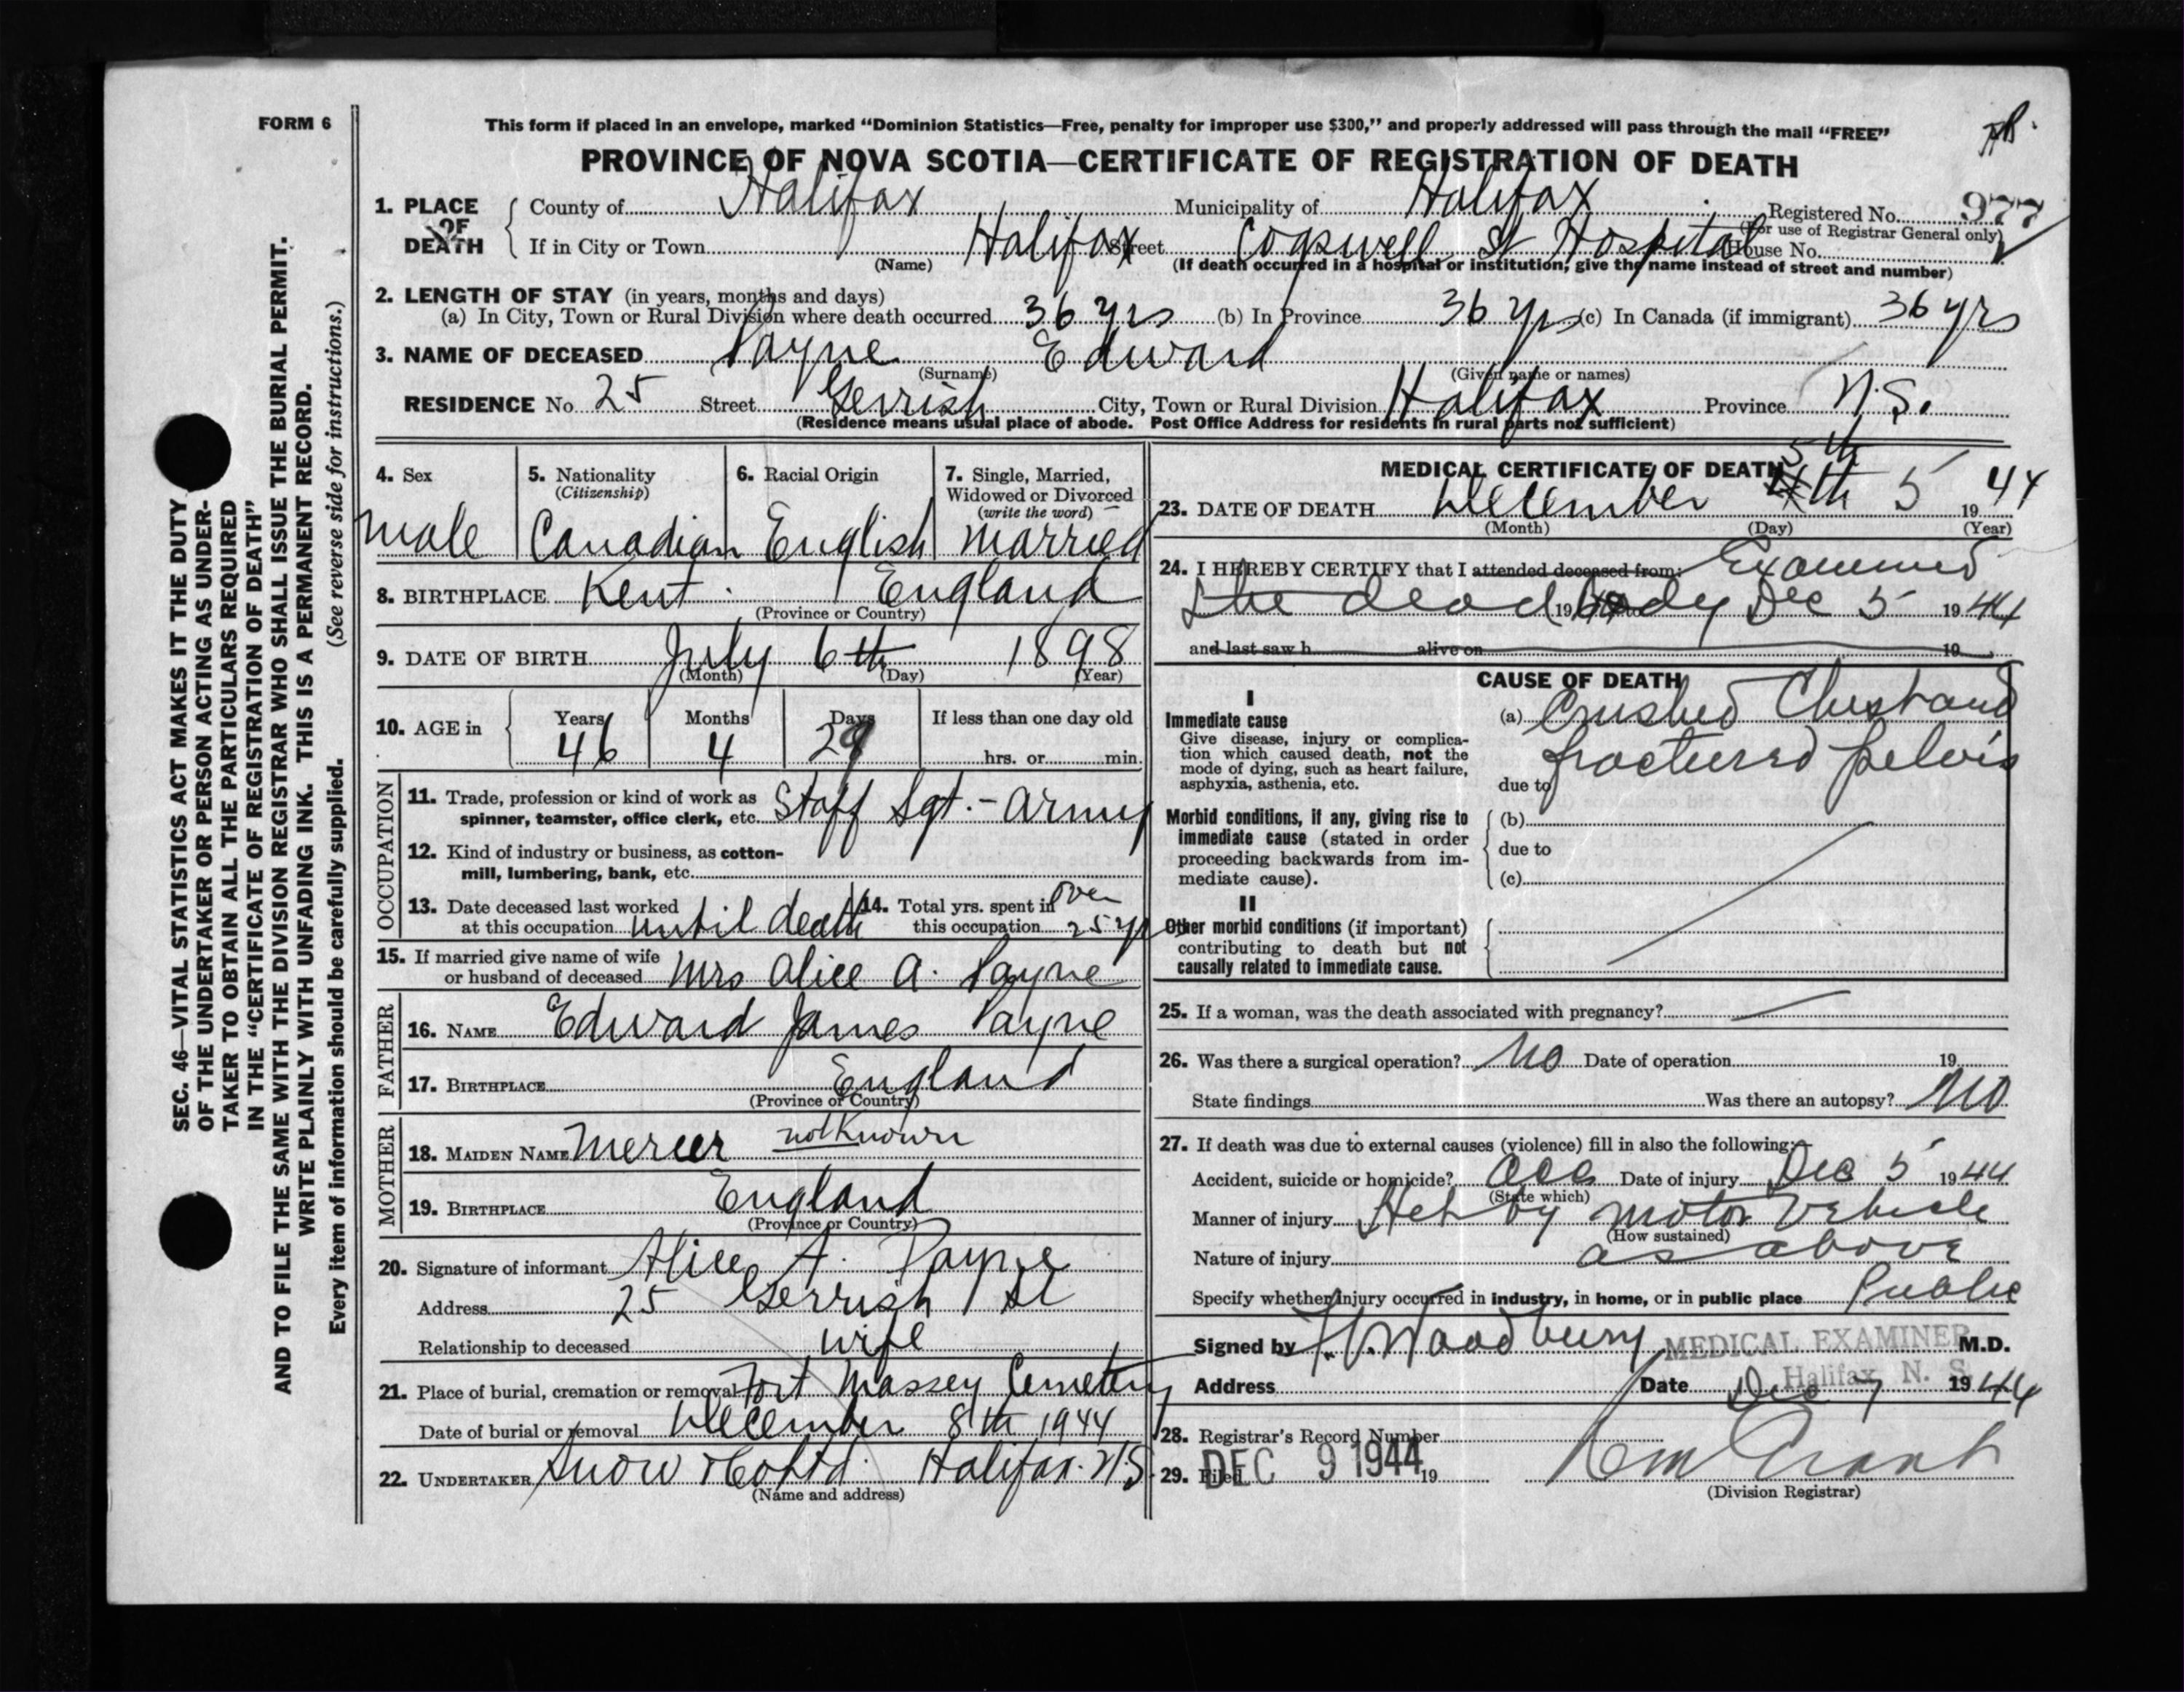 FORM 6
This form if placed in an envelope, marked “Dominion Statistics—Free, penalty for improper use $300,” and properly addressed will pass through the mail “FREE”
PROVINCE OF NOVA SCOTIA—CERTIFICATE OF REGISTRATION OF DEATH
1. PLACE OF DEATH { County of Halifax Municipality of Halifax Registered No. 977
(For use of Registrar General only)
If in City or Town Halifax Street Cogswell St Hospital House No.
(Name) (If death occurred in a hospital or institution, give the name instead of street and number)
2. LENGTH OF STAY (in years, months and days)
(a) In City, Town or Rural Division where death occurred 36 yrs (b) In Province 36 yrs (c) In Canada (if immigrant) 36 yrs
3. NAME OF DECEASED Payne Edward
(Surname) (Given name or names)
RESIDENCE No. 25 Street Gerrish City, Town or Rural Division Halifax Province N.S.
(Residence means usual place of abode. Post Office Address for residents in rural parts not sufficient)
4. Sex
male
5. Nationality
(Citizenship)
Canadian
6. Racial Origin
English
7. Single, Married,
Widowed or Divorced
(write the word)
married
8. BIRTHPLACE Kent. England
(Province or Country)
9. DATE OF BIRTH July 6th 1898
(Month) (Day) (Year)
10. AGE in { Years Months Days If less than one day old
46 4 29 hrs. or min.
OCCUPATION
11. Trade, profession or kind of work as
spinner, teamster, office clerk, etc. Staff Sgt. - Army
12. Kind of industry or business, as cotton-
mill, lumbering, bank, etc.
13. Date deceased last worked
at this occupation until death
14. Total yrs. spent in
this occupation over 25 yr
15. If married give name of wife
or husband of deceased Mrs Alice A. Payne
FATHER
16. NAME Edward James Payne
17. BIRTHPLACE England
(Province or Country)
MOTHER
18. MAIDEN NAME Mercer not known
19. BIRTHPLACE England
(Province or Country)
20. Signature of informant Alice A. Payne
Address 25 Gerrish St
Relationship to deceased wife
21. Place of burial, cremation or removal Fort Massey Cemetery
Date of burial or removal December 8th 1944
22. UNDERTAKER Snow & Co Ltd. Halifax. N.S.
(Name and address)
MEDICAL CERTIFICATE OF DEATH
5th
23. DATE OF DEATH December 4th 5 1944
(Month) (Day) (Year)
24. I HEREBY CERTIFY that I attended deceased from: Examined
the dead body Dec 5 1944
and last saw h alive on 19
CAUSE OF DEATH
I
Immediate cause
Give disease, injury or complica-
tion which caused death, not the
mode of dying, such as heart failure,
asphyxia, asthenia, etc.
(a) Crushed Chest and
fractured pelvis
due to
Morbid conditions, if any, giving rise to
immediate cause (stated in order
proceeding backwards from im-
mediate cause).
(b)
due to
(c)
II
Other morbid conditions (if important)
contributing to death but not
causally related to immediate cause.
25. If a woman, was the death associated with pregnancy?
26. Was there a surgical operation? No Date of operation 19
State findings Was there an autopsy? No
27. If death was due to external causes (violence) fill in also the following:—
Accident, suicide or homicide? Acc Date of injury Dec 5 1944
(State which)
Manner of injury Hit by motor vehicle
(How sustained)
Nature of injury as above
Specify whether injury occurred in industry, in home, or in public place Public
Signed by Woodbury MEDICAL EXAMINER M.D.
Halifax N. S.
Address Date Dec 7 1944
28. Registrar's Record Number
29. Filed DEC 9 1944 19 Grant
(Division Registrar)
SEC. 46—VITAL STATISTICS ACT MAKES IT THE DUTY
OF THE UNDERTAKER OR PERSON ACTING AS UNDER-
TAKER TO OBTAIN ALL THE PARTICULARS REQUIRED
IN THE “CERTIFICATE OF REGISTRATION OF DEATH”
AND TO FILE THE SAME WITH THE DIVISION REGISTRAR WHO SHALL ISSUE THE BURIAL PERMIT.
WRITE PLAINLY WITH UNFADING INK. THIS IS A PERMANENT RECORD.
Every item of information should be carefully supplied. (See reverse side for instructions.)